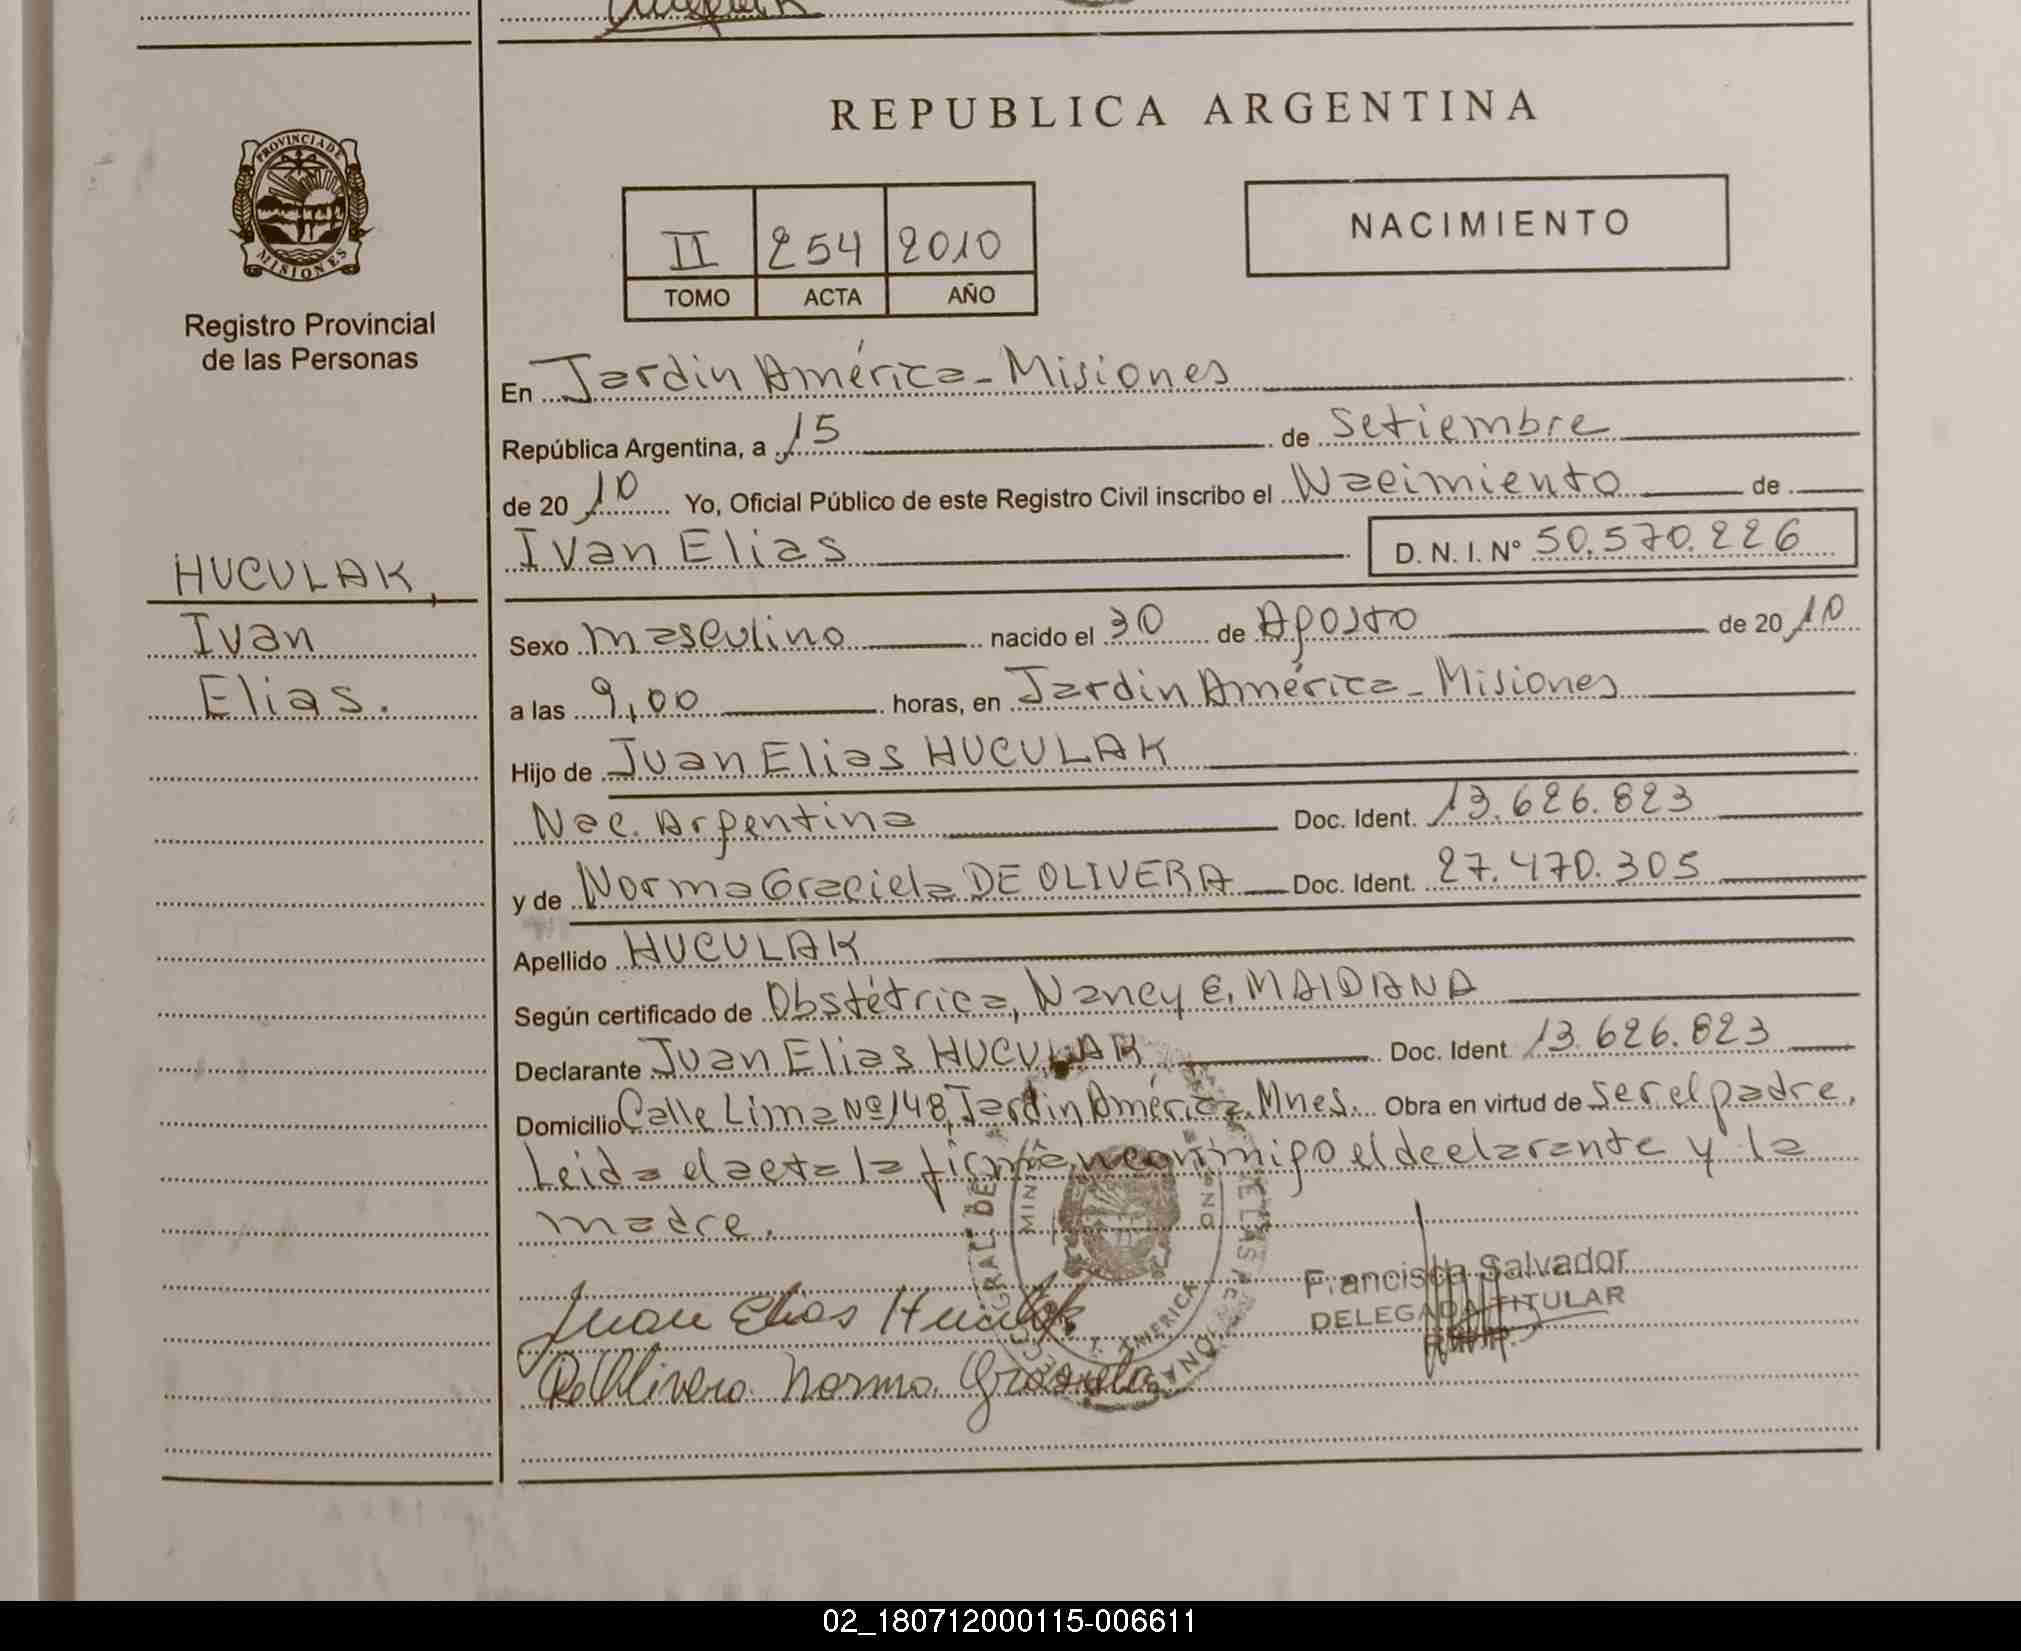 REPUBLICA ARGENTINA
PROVINCIA DE
MISIONES
Registro Provincial
de las Personas
II 254 2010
TOMO ACTA AÑO
NACIMIENTO
En Jardin América - Misiones
República Argentina, a 15 de Setiembre
de 2010 Yo, Oficial Público de este Registro Civil inscribo el Nacimiento de
Ivan Elias D.N.I. Nº 50.570.226
HUCULAK,
Ivan
Elias.
Sexo masculino nacido el 30 de Agosto de 2010
a las 9,00 horas, en Jardin América - Misiones
Hijo de Juan Elias HUCULAK
Nac. Argentina Doc. Ident. 13.626.823
y de Norma Graciela DE OLIVERA Doc. Ident. 27.470.305
Apellido HUCULAK
Según certificado de Obstétrica, Nancy E. MAIDANA
Declarante Juan Elias HUCULAK Doc. Ident 13.626.823
Domicilio Calle Lima Nº 148, Jardin América, Mnes. Obra en virtud de ser el padre.
Leida el acta la firman conmigo el declarante y la
madre.
Francisca Salvador
DELEGADA TITULAR
Juan Elias Huculak
De Olivera Norma Graciela
02_180712000115-006611